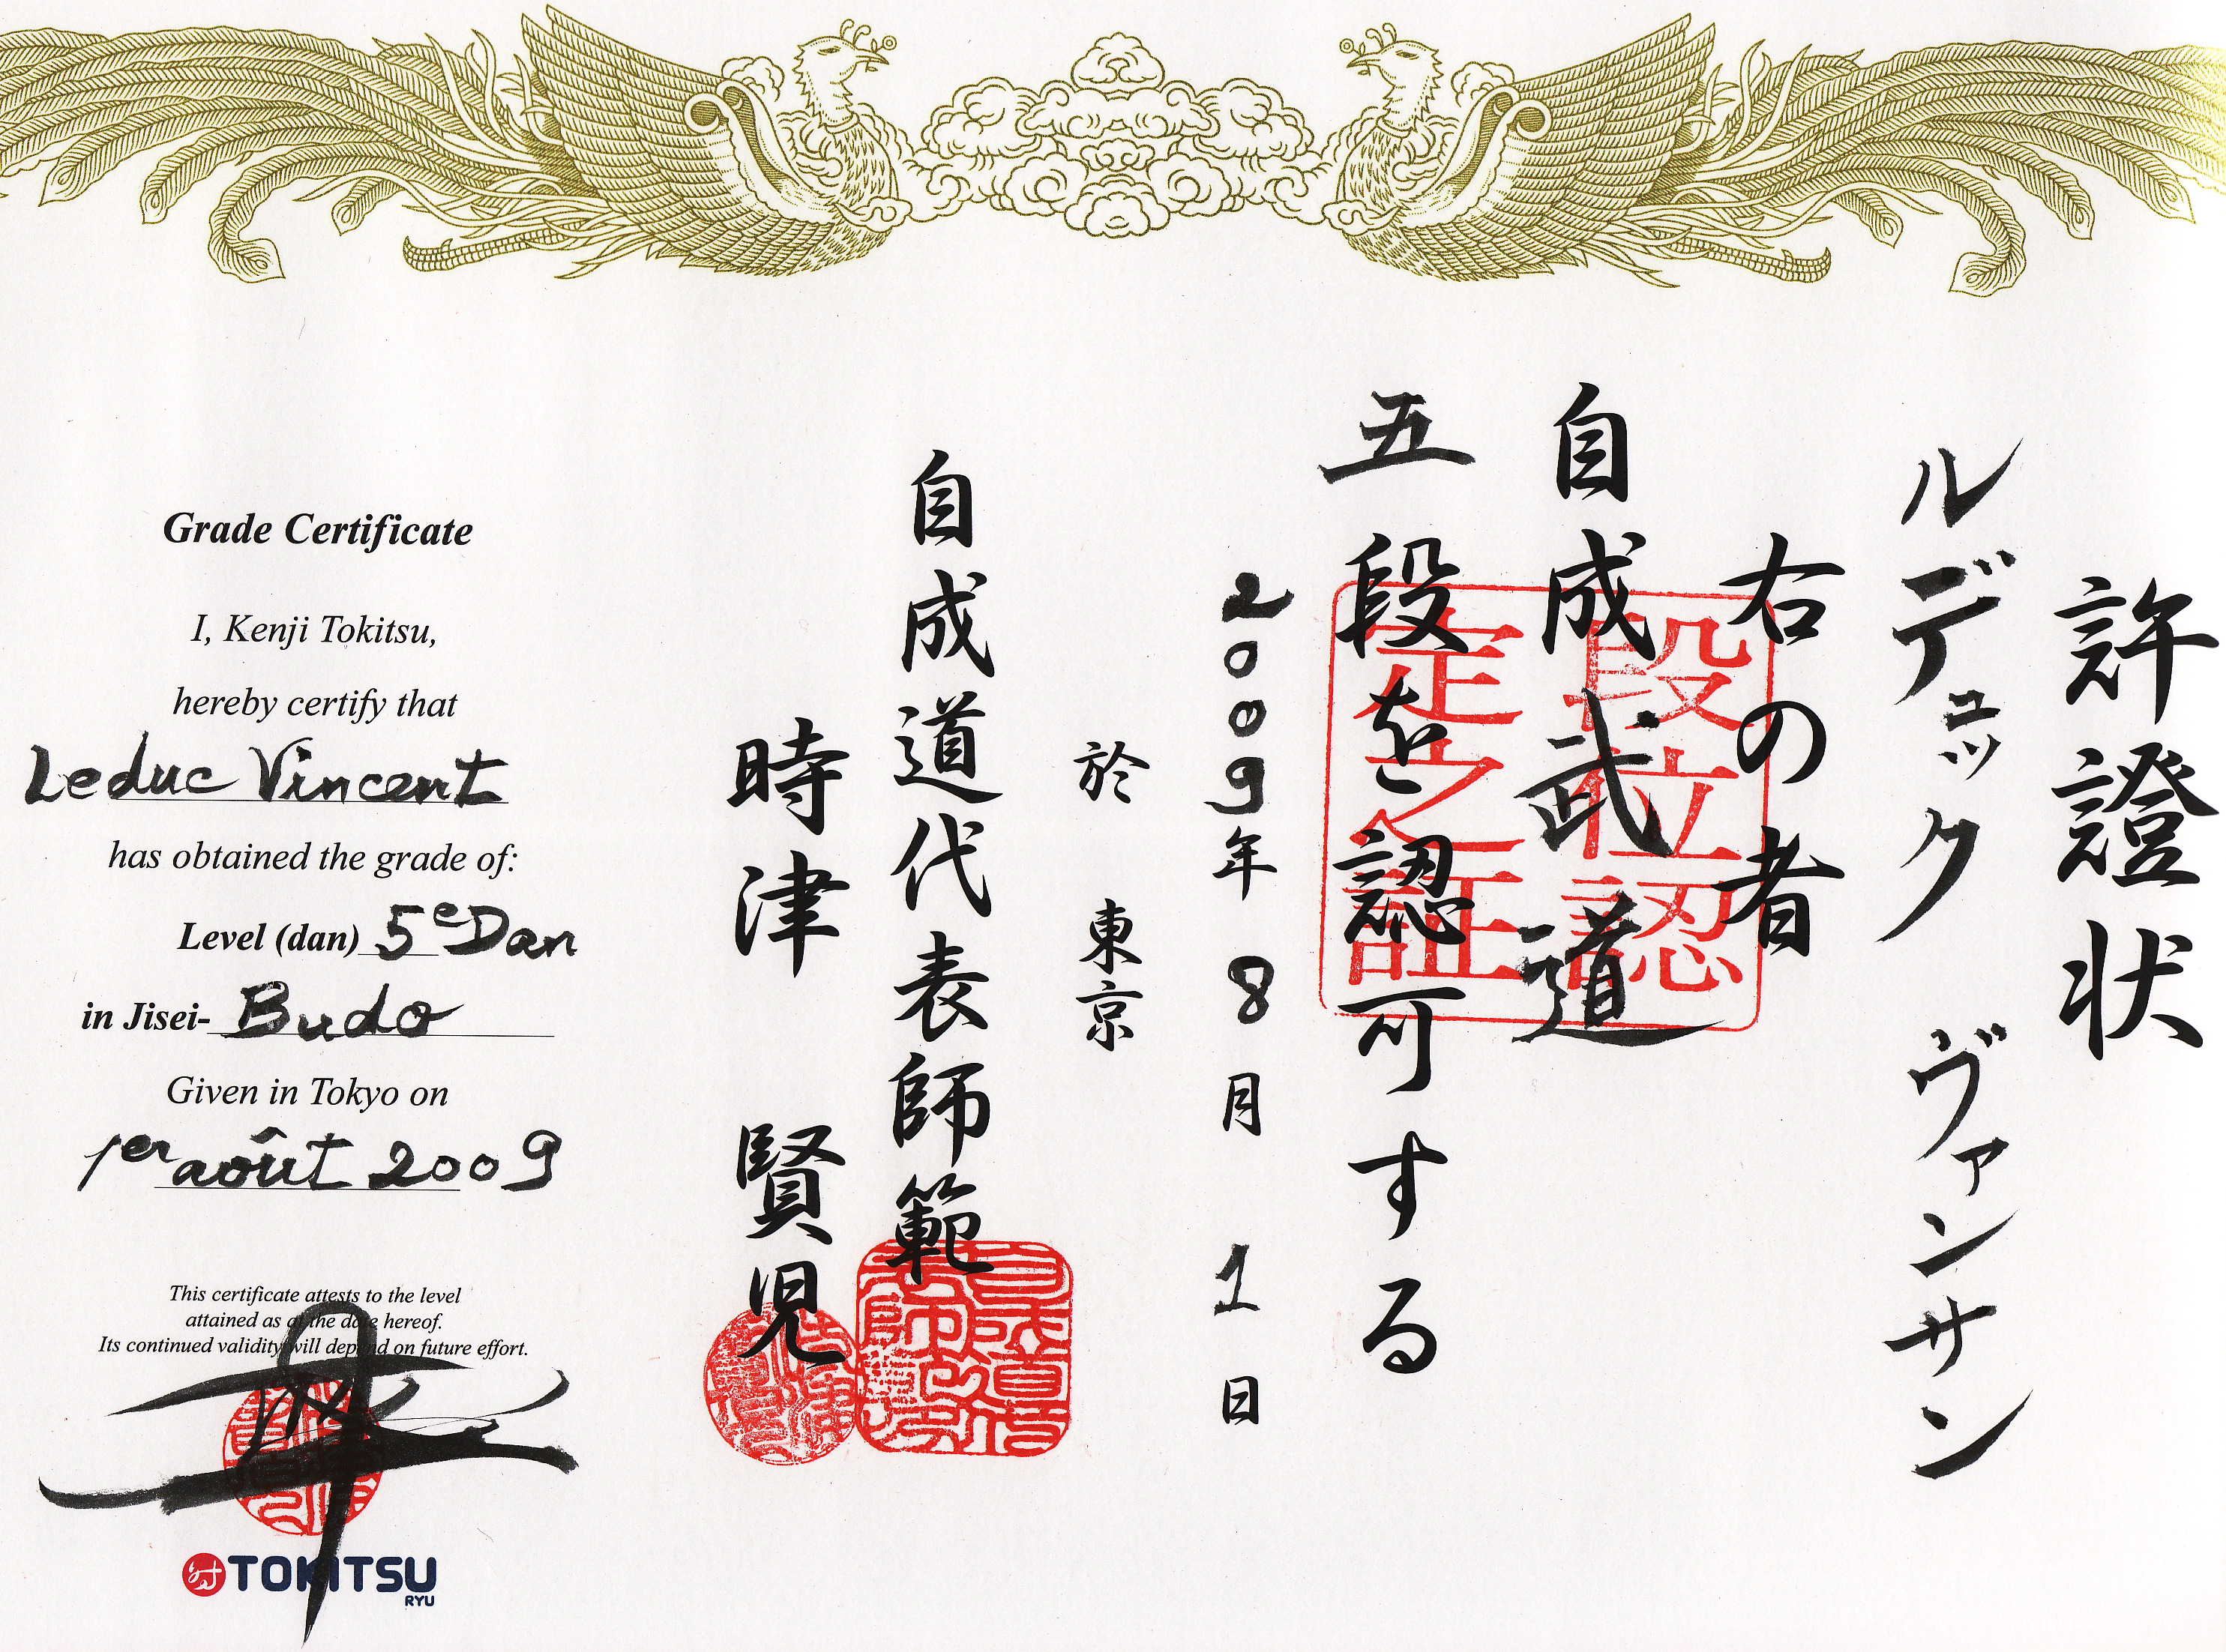 許證状
ルデュック ヴァンサン
右の者
自成武道
五段を認可する
2009年8月1日
於 東京
自成道代表師範
時津 賢児
段位認
定之証
Grade Certificate
I, Kenji Tokitsu,
hereby certify that
Leduc Vincent
has obtained the grade of:
Level (dan) 5e Dan
in Jisei- Budo
Given in Tokyo on
1er août 2009
This certificate attests to the level
attained as at the date hereof.
Its continued validity will depend on future effort.
TOKITSU
RYU